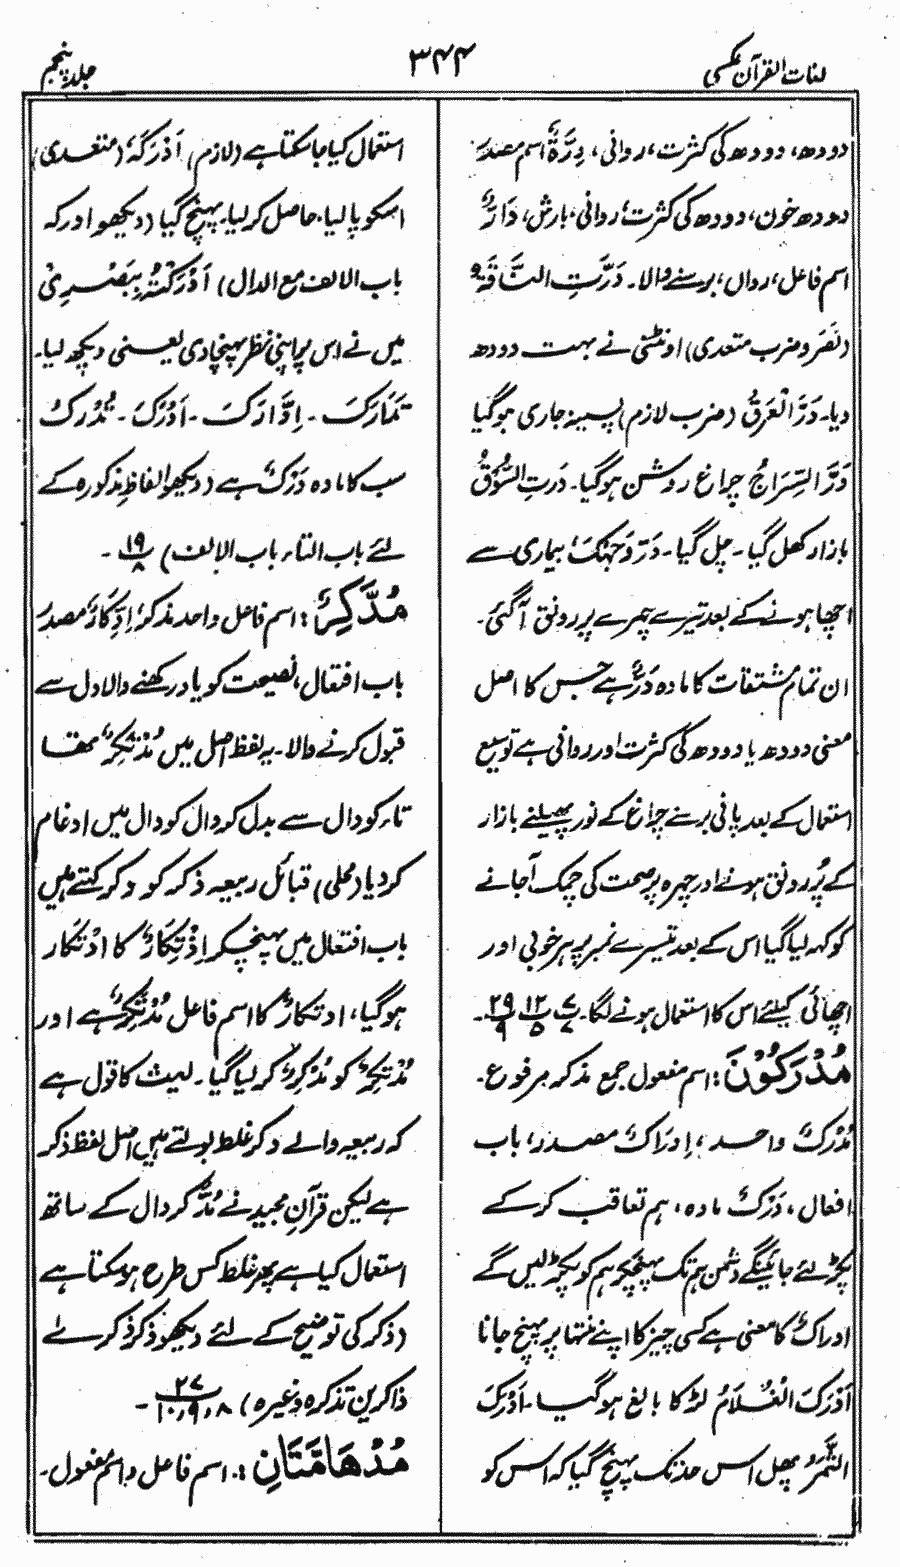 لغات القرآن عکسی
۳۴۴
جلد پنجم
دودھ، دودھ کی کثرت، روانی، دِرَّةٌ اسم مصدر
دودھ خون، دودھ کی کثرت، روانی، بارش، دَارٌّ
اسم فاعل، رواں، برسنے والا۔ دَرَّتِ النَّاقَةُ
(نَصَرَ و ضرب متعدی) اونٹنی نے بہت دودھ
دیا۔ دَرَّ الْعَرَقُ (ضرب لازم) پسینہ جاری ہوگیا
دَرَّ السِّرَاجُ چراغ روشن ہوگیا۔ دَرتِ السُّوقُ
بازار کھل گیا۔ چل گیا۔ دَرَّ وَجْهُكَ بیماری سے
اچھا ہونے کے بعد تیرے چہرے پر رونق آگئی۔
ان تمام مشتقات کا مادہ دَرٌّ ہے جس کا اصل
معنی دودھ یا دودھ کی کثرت اور روانی ہے توسیع
استعمال کے بعد پانی برسنے چراغ کے نور پھیلنے بازار
کے پُر رونق ہونے اور چہرہ پر صحت کی چمک آجانے
کو کہہ لیا گیا اس کے بعد تیسرے نمبر پر ہر خوبی اور
اچھائی کیلئے اس کا استعمال ہونے لگا۔ ۷/۷ ۱۲/۵ ۲۹/۹ ۔
مُدْرَكُوْنَ : اسم مفعول جمع مذکر مرفوع۔
مُدْرَكٌ واحد ، اِدرَاكٌ مصدر، باب
افعال ، دَرْكٌ مادہ، ہم تعاقب کرکے
پکڑ لئے جائینگے دشمن ہم تک پہنچکر ہم کو پکڑ لیں گے
ادراكٌ کا معنی ہے کسی چیز کا اپنے منتہا پر پہنچ جانا
اَدْرَكَ الْغُلَامُ لڑکا بالغ ہوگیا۔ اَدْرَكَ
الثَّمَرُ پھل اس حد تک پہنچ گیا کہ اس کو
استعمال کیا جاسکتا ہے (لازم) اَدْرَكَہٗ (متعدی)
اسکو پالیا، حاصل کرلیا۔ پہنچ گیا (دیکھو ادرکہ
باب الالف مع الدال) اَدْرَكْتُهٗ بِبَصْرِيْ
میں نے اس پر اپنی نظر پہنچادی یعنی دیکھ لیا۔
تَدَارَكَ ۔ اِدَّارَكَ ۔ اَدْرَكَ ۔ مُدْرَكٌ
سب کا مادہ دَرْكٌ ہے (دیکھو الفاظِ مذکورہ کے
لئے باب التاء، باب الالف) ۱۹/۸ ۔
مُدَّكِرٌ : اسم فاعل واحد مذکر، اِدِّكَارٌ مصدر
باب افتعال، نصیحت کو یاد رکھنے والا دل سے
قبول کرنے والا۔ یہ لفظ اصل میں مُذْتَكِرٌ تھا
تاء کو دال سے بدل کر دال کو دال میں ادغام
کردیا (محلی) قبائل ربیعہ ذکر کو دکر کہتے ہیں
باب افتعال میں پہنچکر اِذْتِكَارٌ کا ادْتكار
ہوگیا، ادتكارٌ کا اسم فاعل مُدْتَكِرٌ ہے اور
مُدْتَكِرٌ کو مُدَّكِرٌ کرلیا گیا۔ لیث کا قول ہے
کہ ربیعہ والے دکر غلط بولتے ہیں اصل لفظ ذکر
ہے لیکن قرآنِ مجید نے مُدَّكر دال کے ساتھ
استعمال کیا ہے پھر غلط کس طرح ہوسکتا ہے
(ذکر کی توضیح کے لئے دیکھو ذکر ذکرے
ذاکرین تذکرہ وغیرہ) ۲۷/۸،۹،۱۰ ۔
مُدْهَامَّتَانِ : اسم فاعل و اسم مفعول۔